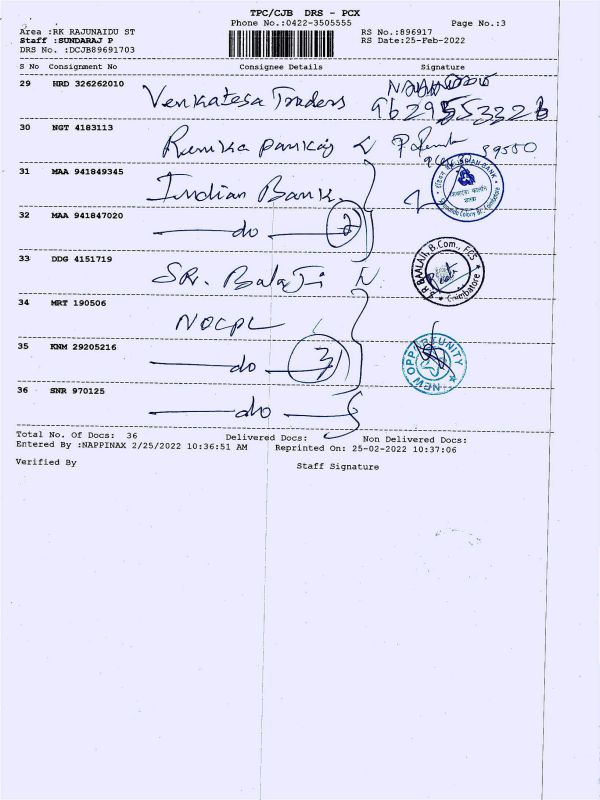 TPC/CJB DRS - PCX
Phone No.:0422-3505555 Page No.:3
Area :RK RAJUNAIDU ST RS No.:896917
Staff :SUNDARAJ P RS Date:25-Feb-2022
DRS No. :DCJB89691703
S No Consignment No Consignee Details Signature
29 HRD 326262010 Venkatesa Traders
30 NGT 4183113
31 MAA 941849345 Indian Bank
32 MAA 941847020 do 2
33 DDG 4151719 SR. Balaji
34 MRT 190506 NOCPL
35 KNM 29205216 do 3
36 SNR 970125 do
B.Com., FCS
Coimbatore
NEW OPPURTUNITY
Total No. Of Docs: 36 Delivered Docs: Non Delivered Docs:
Entered By :NAPPINAX 2/25/2022 10:36:51 AM Reprinted On: 25-02-2022 10:37:06
Verified By Staff Signature